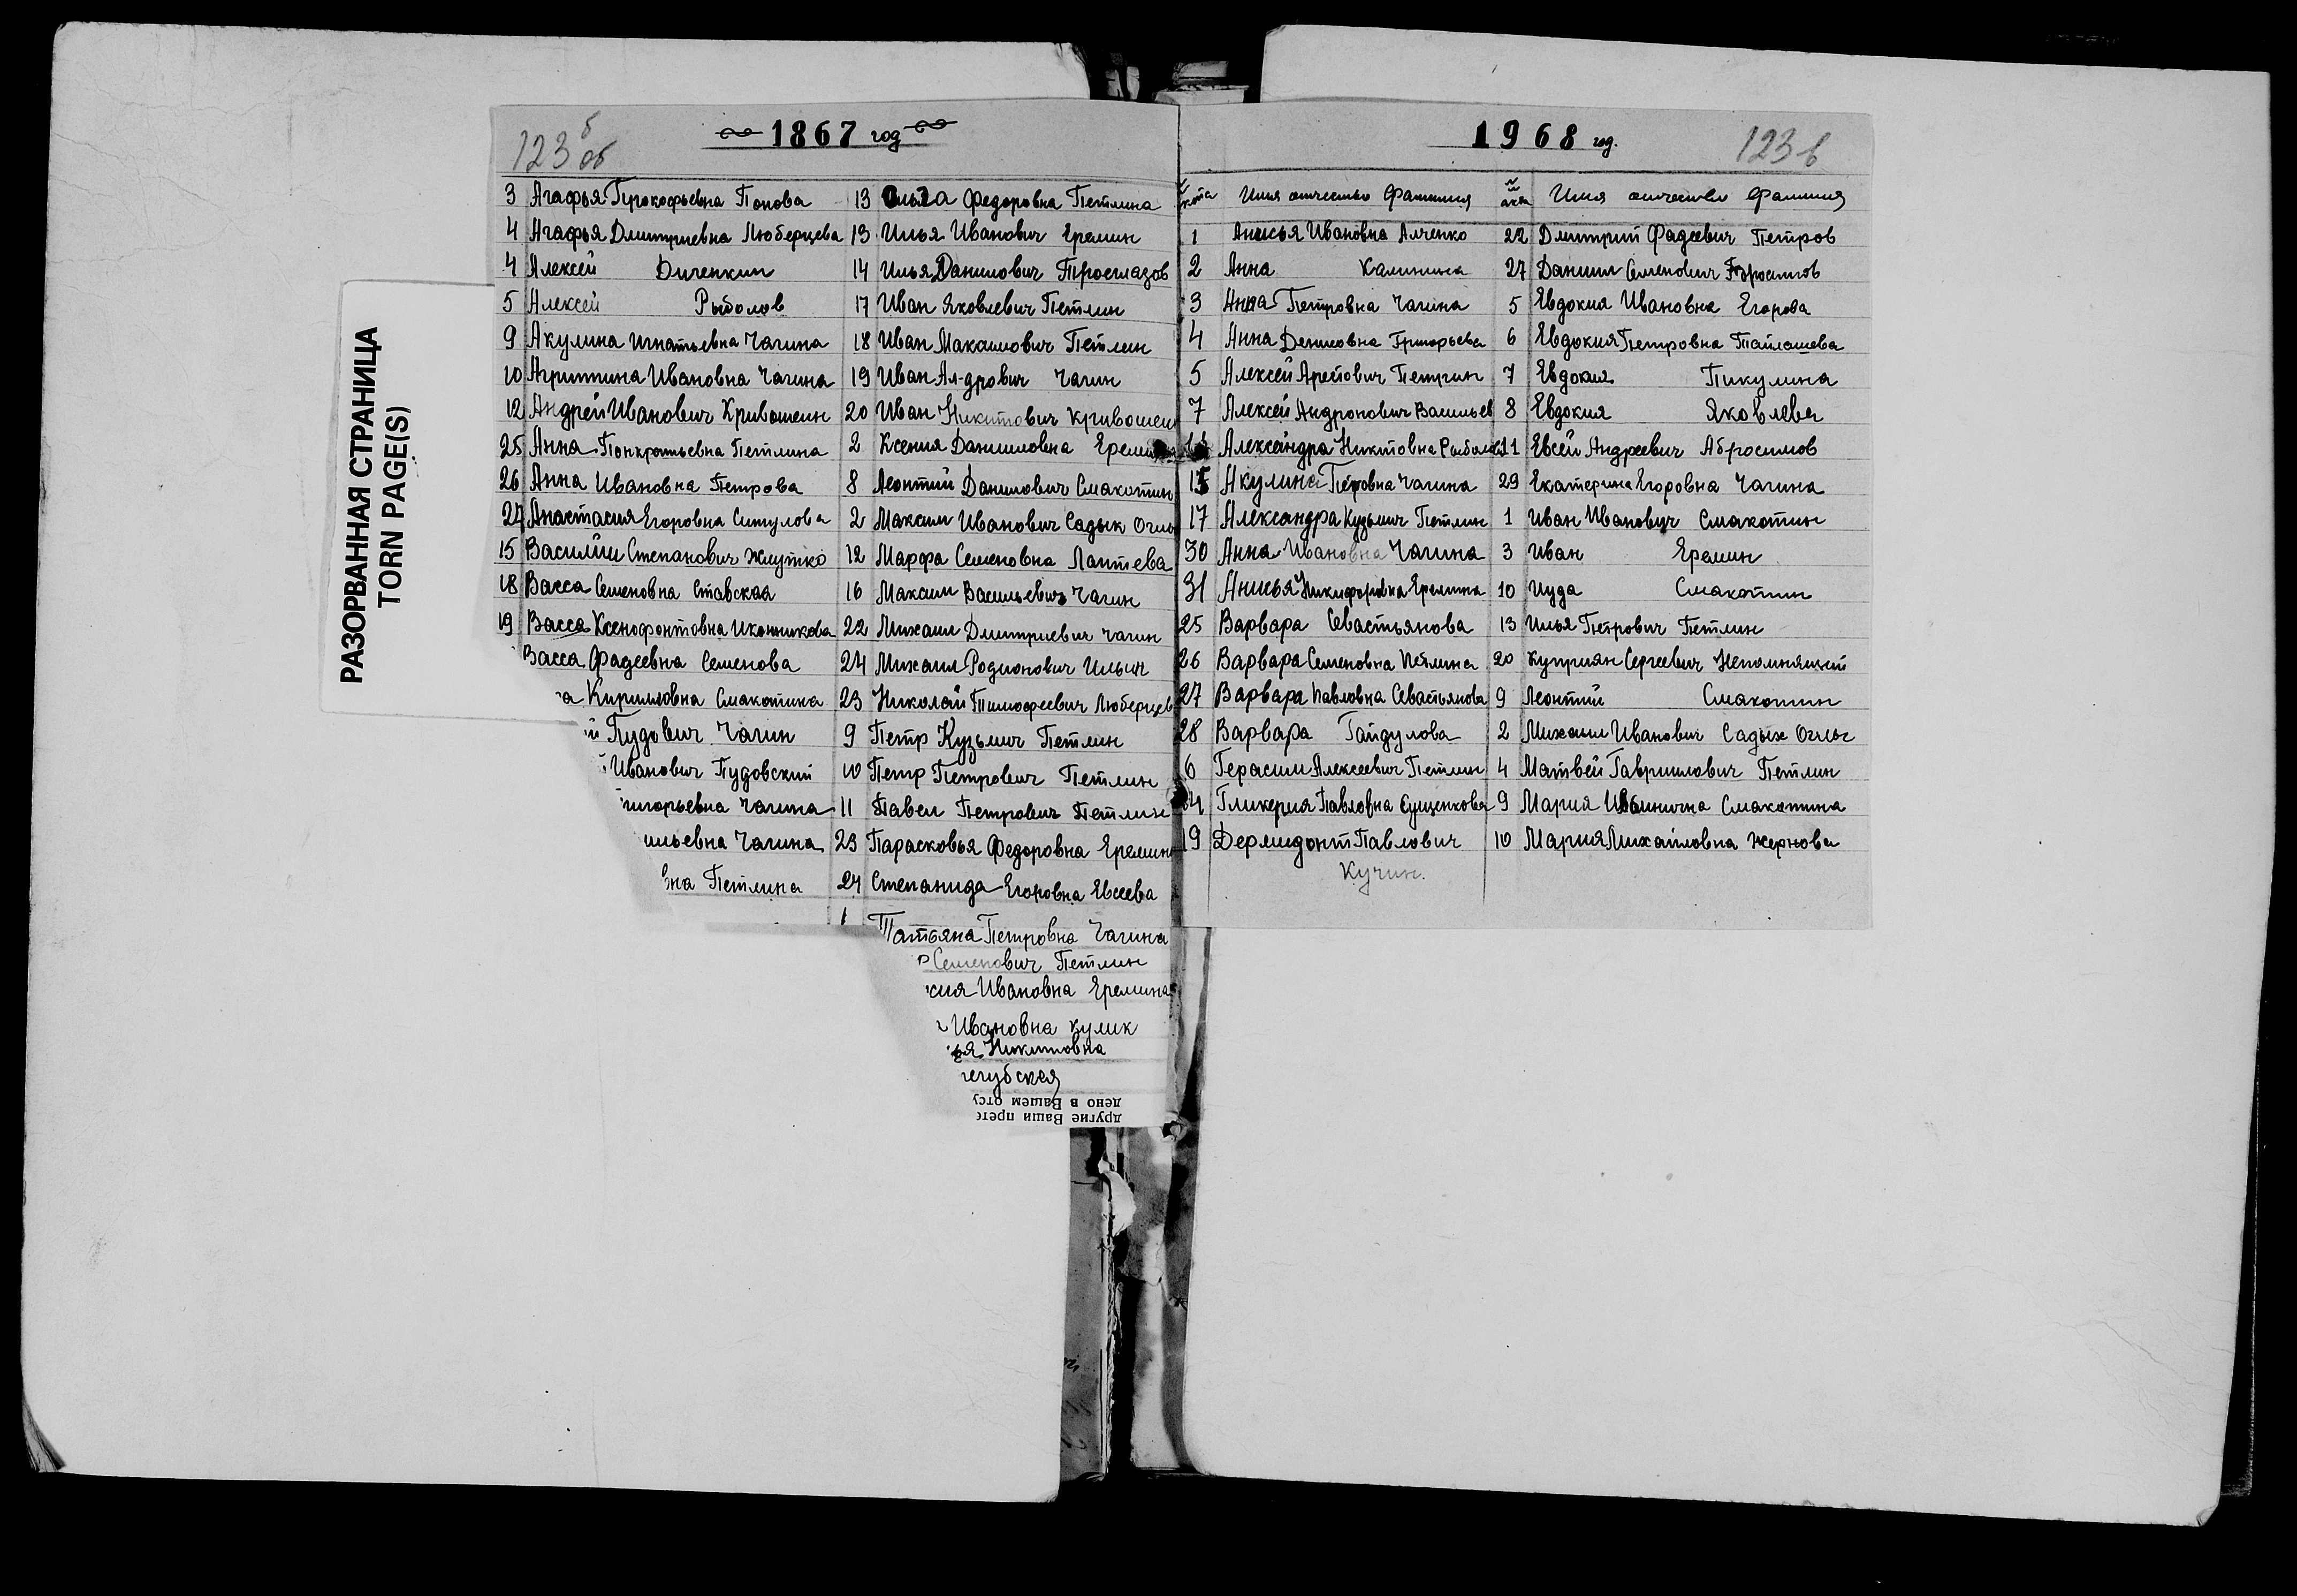 РАЗОРВАННАЯ СТРАНИЦА
TORN PAGE(S)
123 б об
1867 год
3 Агафья Прокофьевна Попова
4 Агафья Дмитриевна Люберцева
4 Алексей Диченкин
5 Алексей Рыболов
9 Акулина Игнатьевна Чагина
10 Агриппина Ивановна Чагина
12 Андрей Иванович Кривошеин
25 Анна Понкратьевна Петлина
26 Анна Ивановна Петрова
27 Анастасия Егоровна Ситулова
15 Василий Степанович Жлутко
18 Васса Семеновна Ставская
19 Васса Ксенофонтовна Иконникова
Васса Фадеевна Семенова
Кирилловна Смакотина
Пудович Чагин
Иванович Пудовский
игорьевна Чагина
ильевна Чагина
вна Петлина
13 Ольга Федоровна Петлина
13 Илья Иванович Еремин
14 Илья Данилович Троеглазов
17 Иван Яковлевич Петлин
18 Иван Максимович Петлин
19 Иван Ал-дрович Чагин
20 Иван Никитович Кривошеин
2 Ксения Даниловна
8 Леонтий Данилович Смакотин
2 Максим Иванович Садык Оглы
12 Марфа Семеновна Лаптева
16 Максим Васильевич Чагин
22 Михаил Дмитриевич Чагин
24 Михаил Родионович Ильич
23 Николай Тимофеевич Люберцев
9 Петр Кузьмич Петлин
10 Петр Петрович Петлин
11 Павел Петрович Петлин
23 Парасковья Федоровна Еремина
24 Степанида Егоровна Евсеева
1 Татьяна Петровна Чагина
Семенович Петлин
сия Ивановна Еремина
Ивановна Кулик
ья Никитовна
чегубская
дено в Вашем отсу
другие Ваши прете
1968 год.
123 в
№ акта Имя отчество Фамилия
1 Анисья Ивановна Ляченко
2 Анна Калинина
3 Анна Петровна Чагина
4 Анна Денисовна Григорьева
5 Алексей Арефович Петрин
7 Алексей Андронович Васильев
Александра Никитовна
15 Акулина Петровна Чагина
17 Александра Кузьмич Петлин
30 Анна Ивановна Чагина
31 Анисья Никифоровна Еремина
25 Варвара Севастьянова
26 Варвара Семеновна Петлина
27 Варвара Павловна Севастьянова
28 Варвара Гайдулова
6 Герасим Алексеевич Петлин
Гликерия Павловна Сущенкова
19 Дермидонт Павлович
Кучин.
№ акта Имя отчество Фамилия
22 Дмитрий Фадеевич Петров
27 Даниил Семенович
5 Евдокия Ивановна Егорова
6 Евдокия Петровна Тайлашева
7 Евдокия Пикулина
8 Евдокия Яковлева
11 Евсей Андреевич Абросимов
29 Екатерина Егоровна Чагина
1 Иван Иванович Смакотин
3 Иван Еремин
10 Иуда Смакотин
13 Илья Петрович Петлин
20 Куприян Сергеевич Непомнящий
9 Леонтий Смакотин
2 Михаил Иванович Садых Оглы
4 Матвей Гаврилович Петлин
9 Мария Ивановна Смакотина
10 Мария Михайловна Жернова